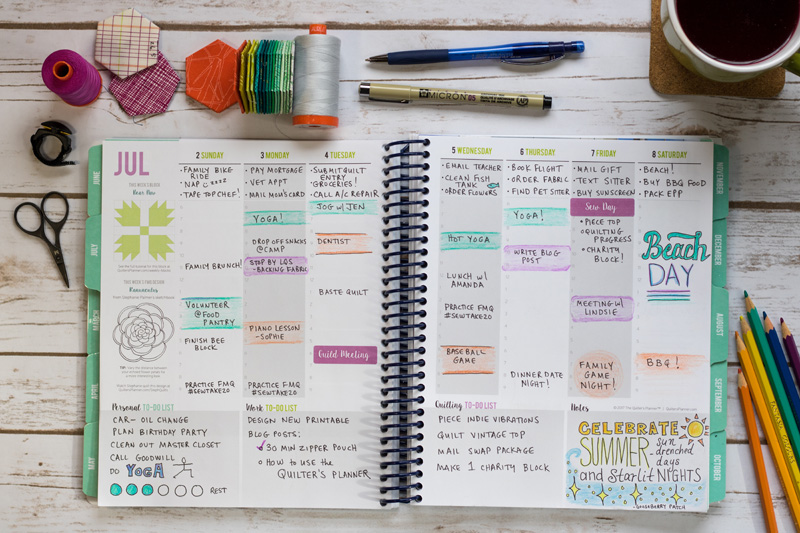 JUL
THIS WEEK'S BLOCK
Bear Paw
THIS WEEK'S FMQ DESIGN
Ranunculus
2 SUNDAY
• FAMILY BIKE RIDE
• NAP
• TAPE TOP CHEF!
FAMILY BRUNCH!
VOLUNTEER
@ FOOD
PANTRY
FINISH BEE
BLOCK
PRACTICE FMQ
#SEWTAKE20
3 MONDAY
• PAY MORTGAGE
• VET APPT
• MAIL MOM'S CARD
YOGA!
DROP OFF SNACKS
@ CAMP
STOP BY LQS
- BACKING FABRIC
PIANO LESSON
- SOPHIE
PRACTICE FMQ
#SEWTAKE20
4 TUESDAY
• SUBMIT QUILT
ENTRY
• GROCERIES!
• CALL A/C REPAIR
JOG W/ JEN
DENTIST
BASTE QUILT
Guild Meeting
Personal TO-DO LIST
CAR - OIL CHANGE
PLAN BIRTHDAY PARTY
CLEAN OUT MASTER CLOSET
CALL GOODWILL
DO YOGA
REST
Work TO-DO LIST
DESIGN NEW PRINTABLE
BLOG POSTS:
30 MIN ZIPPER POUCH
HOW TO USE THE
QUILTER'S PLANNER
5 WEDNESDAY
• EMAIL TEACHER
• CLEAN FISH
TANK
• ORDER FLOWERS
HOT YOGA
LUNCH W/
AMANDA
PRACTICE FMQ
#SEWTAKE20
BASEBALL
GAME
6 THURSDAY
• BOOK FLIGHT
• ORDER FABRIC
• FIND PET SITTER
YOGA!
WRITE BLOG
POST
DINNER DATE
NIGHT!
7 FRIDAY
• MAIL GIFT
• TEXT SITTER
• BUY SUNSCREEN
Sew Day
• PIECE TOP
• QUILTING
PROGRESS
• CHARITY
BLOCK!
MEETING W/
LINDSIE
FAMILY
GAME
NIGHT!
8 SATURDAY
• BEACH!
• BUY BBQ FOOD
• PACK EPP
Beach
DAY
BBQ!
Quilting TO-DO LIST
PIECE INDIE VIBRATIONS
QUILT VINTAGE TOP
MAIL SWAP PACKAGE
MAKE 1 CHARITY BLOCK
Notes
CELEBRATE
SUMMER sun
drenched
days
and Starlit NIGHTS
- GOOSEBERRY PATCH
JUNE
JULY
MARCH
APRIL
MAY
NOVEMBER
DECEMBER
AUGUST
SEPTEMBER
OCTOBER
MICRON 05